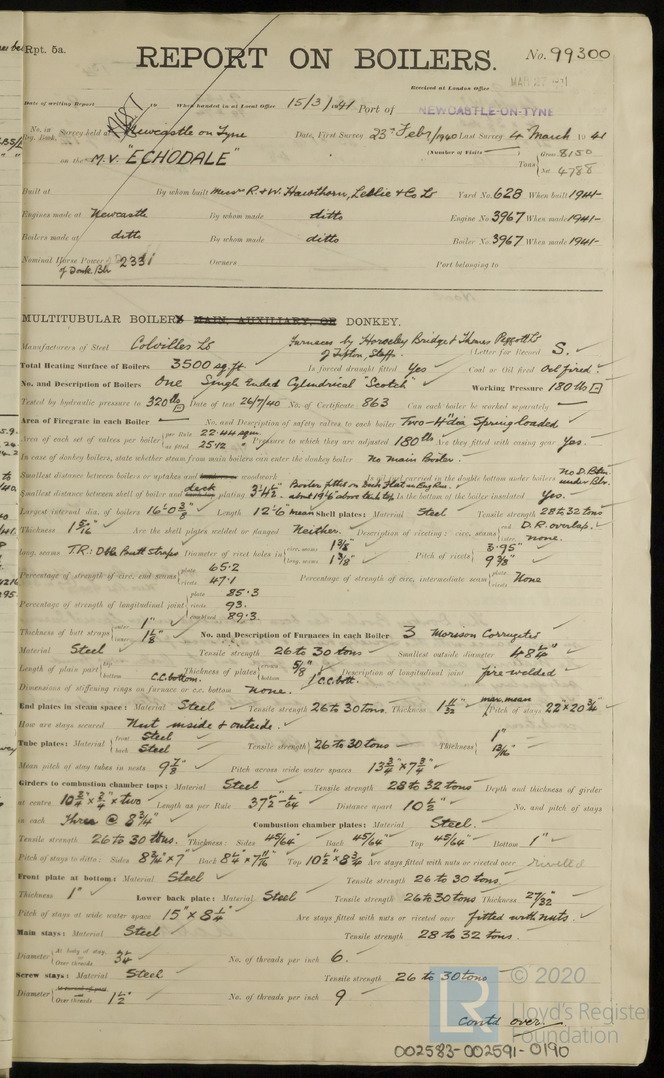 Rpt. 5a.
REPORT ON BOILERS.
No. 99300
Received at London Office
MAR 27 1941
Date of writing Report 19 When handed in at Local Office 15/3/1941 Port of NEWCASTLE-ON-TYNE
No. in Reg. Book. Survey held at Newcastle on Tyne Date, First Survey 23rd Feby/1940 Last Survey 4 March 1941
on the M.V. "ECHODALE" (Number of Visits Tons Gross 8150 Net 4788
Built at By whom built Messrs R. & W. Hawthorn, Leslie & Co Ld Yard No. 628 When built 1941
Engines made at Newcastle By whom made ditto Engine No. 3967 When made 1941
Boilers made at ditto By whom made ditto Boiler No. 3967 When made 1941
Nominal Horse Power of Donk. Blr 233 Owners Port belonging to
MULTITUBULAR BOILER MAIN, AUXILIARY, OR DONKEY.
Manufacturers of Steel Colvilles Ld Furnaces by Horseley Bridge & Thomas Piggott Ld of Tipton, Staffs. (Letter for Record S.
Total Heating Surface of Boilers 3500 sq.ft Is forced draught fitted Yes Coal or Oil fired Oil fired
No. and Description of Boilers One Single Ended Cylindrical "Scotch" Working Pressure 180 lb
Tested by hydraulic pressure to 320 lb Date of test 26/7/40 No. of Certificate 863 Can each boiler be worked separately
Area of Firegrate in each Boiler No. and Description of safety valves to each boiler Two - 4" dia Spring-loaded
Area of each set of valves per boiler per Rule 22.44 sq in. as fitted 25.12 Pressure to which they are adjusted 180 lbs Are they fitted with easing gear Yes.
In case of donkey boilers, state whether steam from main boilers can enter the donkey boiler No main Boiler.
Smallest distance between boilers or uptakes and woodwork Is oil fuel carried in the double bottom under boilers No D. Btm. under Blr.
Smallest distance between shell of boiler and deck plating 3'4½" Boiler fitted on Deck Flat in Eng Rm. about 19'6" above tank top Is the bottom of the boiler insulated Yes.
Largest internal dia. of boilers 16'0 3/8" Length 12'6" mean Shell plates: Material Steel Tensile strength 28 to 32 tons
Thickness 1 5/16" Are the shell plates welded or flanged Neither. Description of riveting: circ. seams end D.R. overlap. inter. none.
long. seams T.R. : Dble Butt straps Diameter of rivet holes in circ. seams 1 3/8" long. seams 1 3/8" Pitch of rivets 3.95" 9 3/8"
Percentage of strength of circ. end seams plate 65.2 rivets 47.1 Percentage of strength of circ. intermediate seam plate rivets None
Percentage of strength of longitudinal joint plate 85.3 rivets 93. combined 89.3
Thickness of butt straps outer 1" inner 1 1/8" No. and Description of Furnaces in each Boiler 3 Morison Corrugated
Material Steel Tensile strength 26 to 30 tons Smallest outside diameter 48¼"
Length of plain part top bottom C.C bottom. Thickness of plates crown 5/8" bottom 1" C.C bott. Description of longitudinal joint fire-welded
Dimensions of stiffening rings on furnace or c.c. bottom None.
End plates in steam space: Material Steel Tensile strength 26 to 30 tons. Thickness 1 11/32" Pitch of stays max. mean 22" x 20¾"
How are stays secured Nut inside & outside.
Tube plates: Material front Steel back Steel Tensile strength 26 to 30 tons Thickness 1" 13/16"
Mean pitch of stay tubes in nests 9 7/8" Pitch across wide water spaces 13¾" x 7¾"
Girders to combustion chamber tops: Material Steel Tensile strength 28 to 32 tons Depth and thickness of girder
at centre 10¾" x ¾" x two Length as per Rule Distance apart 10½" No. and pitch of stays
in each Three @ 8¾" Combustion chamber plates: Material Steel.
Tensile strength 26 to 30 tons. Thickness: Sides 45/64" Back 45/64" Top 45/64" Bottom 1"
Pitch of stays to ditto: Sides 8¾" x 7" Back 8¼" x 7 11/16" Top 10½" x 8¾ Are stays fitted with nuts or riveted over rivetted
Front plate at bottom: Material Steel Tensile strength 26 to 30 tons.
Thickness 1" Lower back plate: Material Steel Tensile strength 26 to 30 tons Thickness 27/32"
Pitch of stays at wide water space 15" x 8¼" Are stays fitted with nuts or riveted over fitted with nuts.
Main stays: Material Steel Tensile strength 28 to 32 tons.
Diameter At body of stay, Over threads 3¼" No. of threads per inch 6.
Screw stays: Material Steel Tensile strength 26 to 30 tons
Diameter At turned off part, Over threads 1½" No. of threads per inch 9
contd over.
© 2020
LR Lloyd's Register Foundation
002583-002591-0190